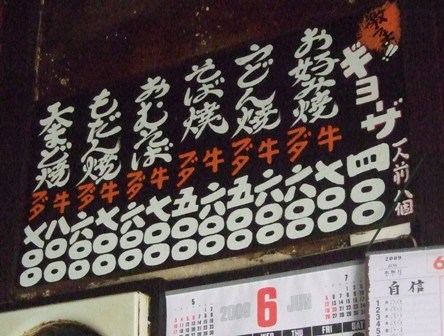 ギョーザ 一人前八個 四〇〇
お好み焼 牛 七〇〇 ブタ 六〇〇
うどん焼 牛 六〇〇 ブタ 五〇〇
そば焼 牛 六〇〇 ブタ 五〇〇
おむそば 牛 七〇〇 ブタ 六〇〇
もだん焼 牛 七〇〇 ブタ 六〇〇
牛 八〇〇 ブタ 七〇〇
5
7
2009 6 JUN
WED THU FRI SAT
2009
6
自信